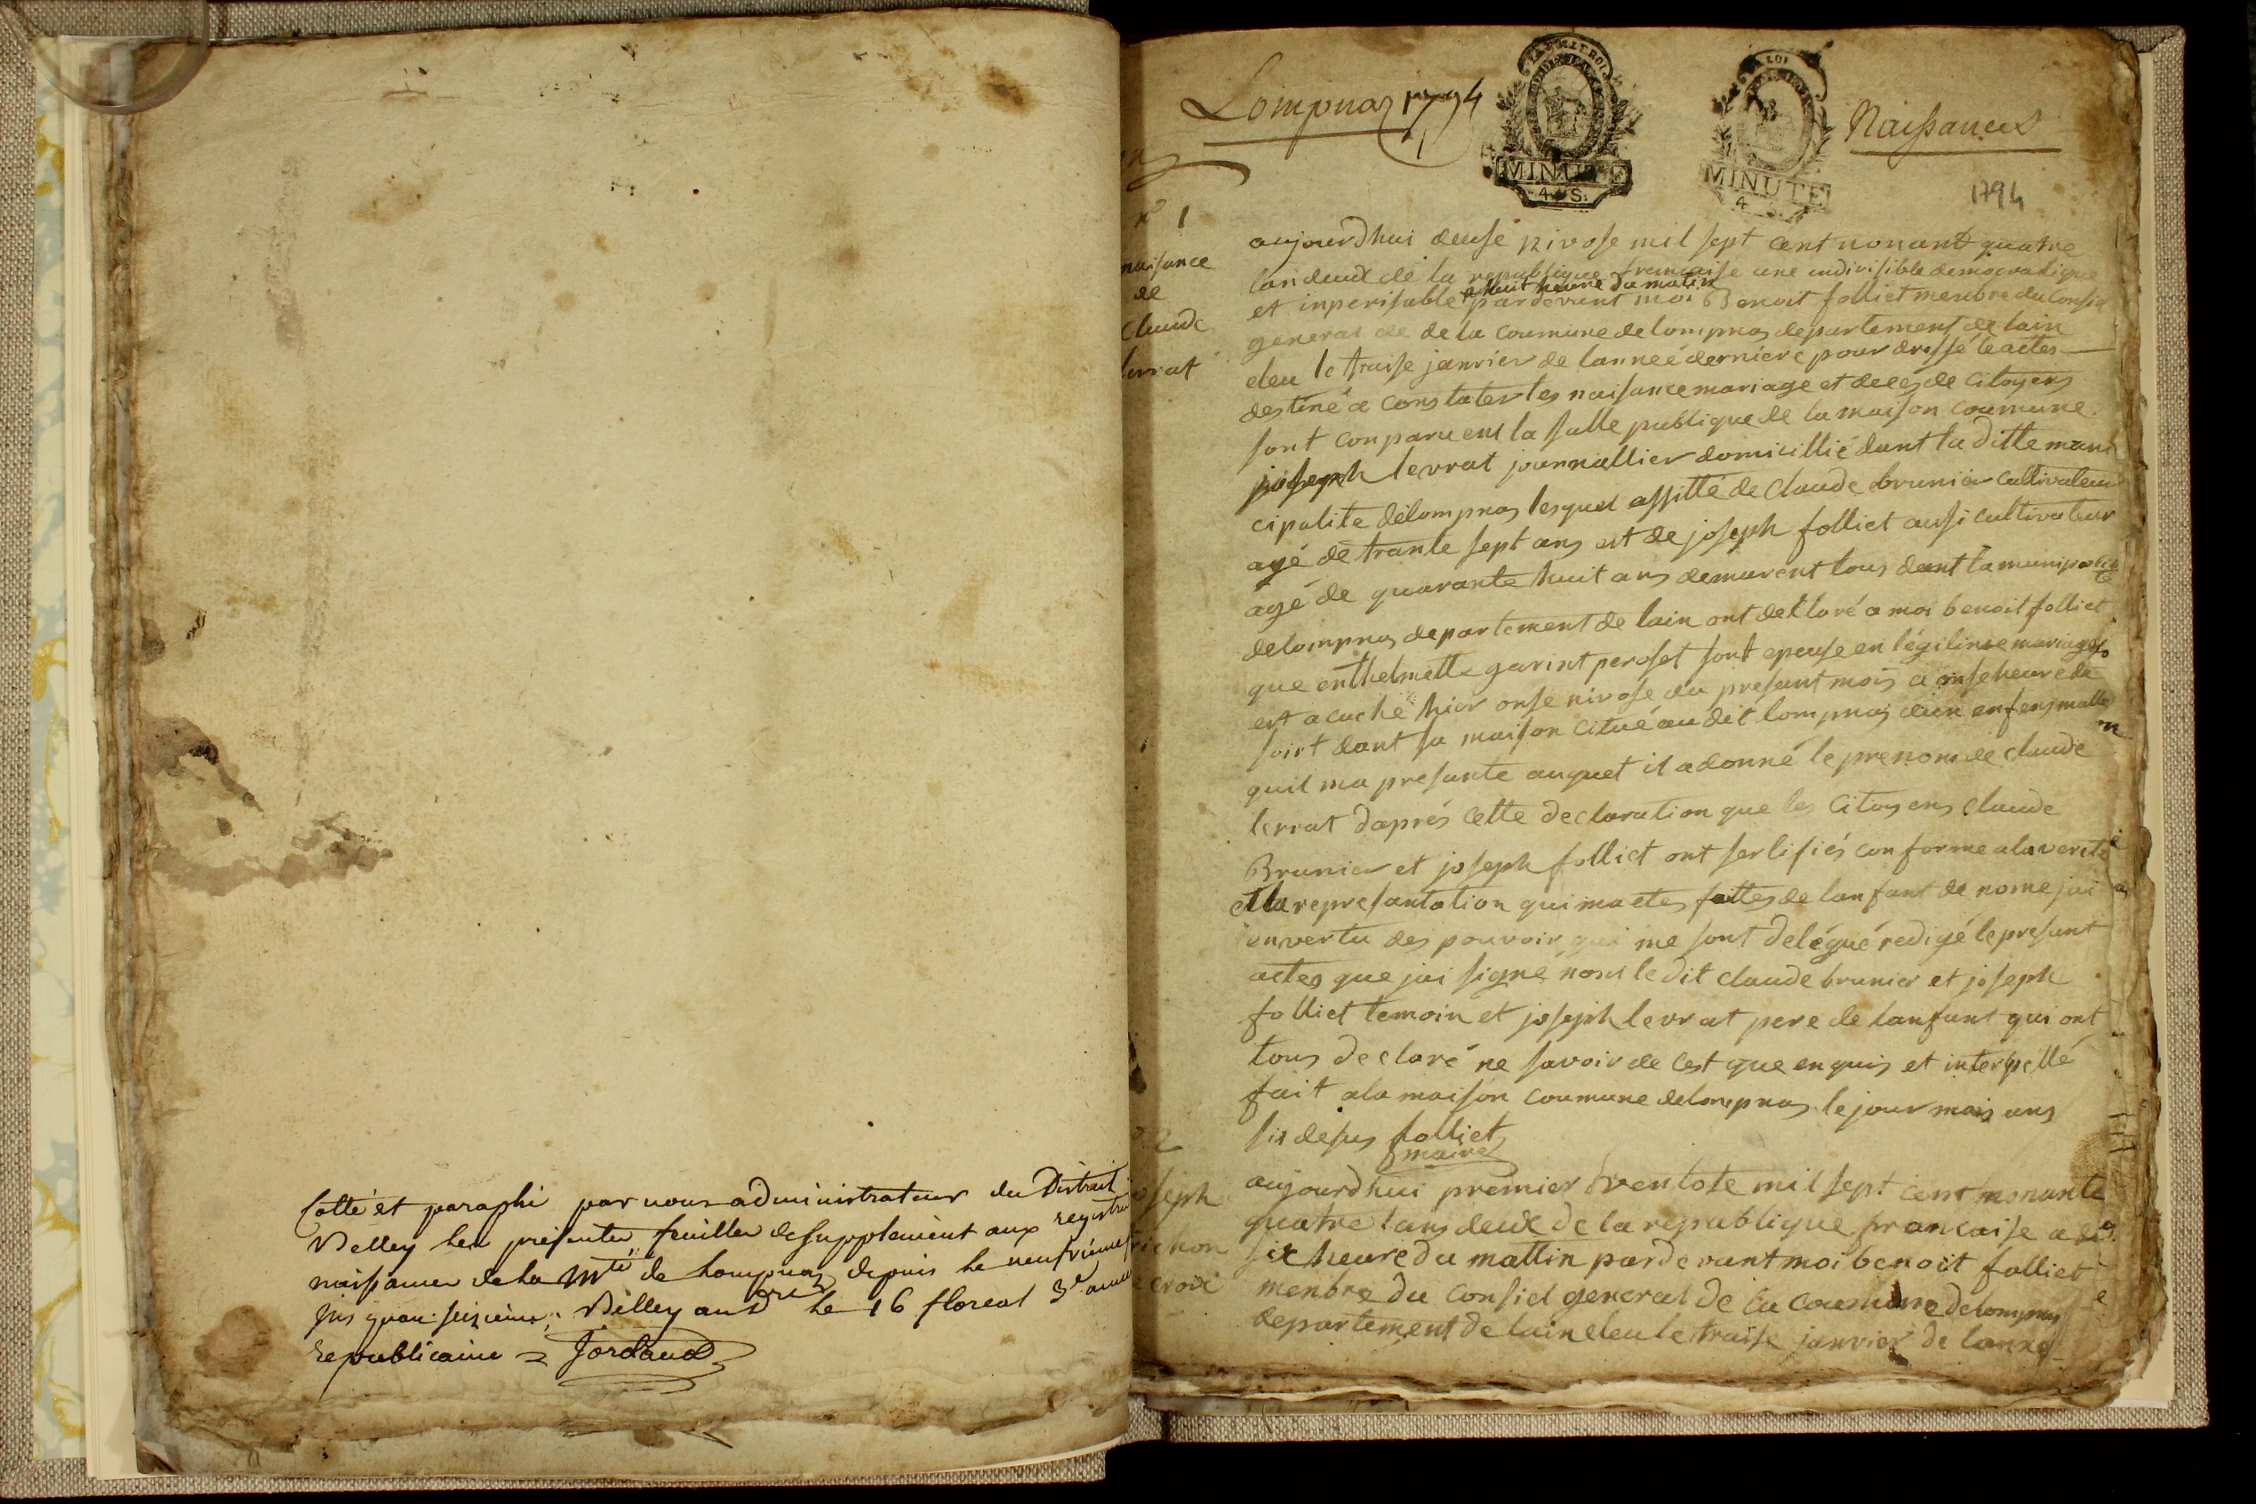 Cotté et paraphé par nous administrateur du District
Belley les présentes feuilles de supplement aux registres
naissances de la Mté de Lompnaz depuis le neufvieme
jus quau seizieme; Belley au Dre le 16 floreal 3e année
republicaine Jordand
Lompnaz 1794
LA LOI
MINUTE
4 S.
LA LOI
MINUTE
4 S.
Naissances
1794
n° 1
naisance
de
Claude
levrat
aujourdhui deuse nivose mil sept cent nonant quatre
lan deux de la republique francaise une indivisible democratique
a huit heure du matin
et inperisable pardevant moi Benoit folliet menbre du Consiel
general de de la coumune de lompnas departement de lain
eleu le traise janvier de lanneé derniere pour dressé le actes
destiné a constater les naisance mariage et deces de citoyens
sont conparu ent la salle publique de la maison coumune
joseph levrat journallier domicillié dant la ditte muni
cipalite delompnas lesquel assitté de Claude brunier cultivateur
agé de trante sept ans est de joseph folliet ausi cultivateur
agé de quarante huit ans demurent tous dant la munipalite
delompnas departement de lain ont declaré a moi benoit folliet
que enthelmette garint peroset sont epeuse en légitime mariage
est acuché hier onse nivose du présant mois a onse heure de
soirt dant sa maison citué au dit lompnas dun enfens malle
quil ma presante auquet il a donné le prenom de claude
levrat daprés cette declaration que les Citoyens claude
Brunier et joseph folliet ont sertifiés conforme a la verité
et la represantation qui ma etes faittes de lanfant de nome jai
en vertu des pouvoir qui me sont delégué redigé le presant
actes que jai signe nont le dit claude brunier et joseph
folliet temoin et joseph levrat pere de lanfant qui ont
tous declaré ne savoir de cest que enquis et interpellé
fait a la maison coumune delompnas le jour mois ans
sis desus folliet
maire
2
joseph
richon
aujourdhui premier ventose mil sept cent nonante
quatre lans deux de la republique francaise a
six heure du mattin pardevant moi benoit folliet
menbre du Consiel general de la coumune delompnas
departement de lain eleu le traise janvier de lanne